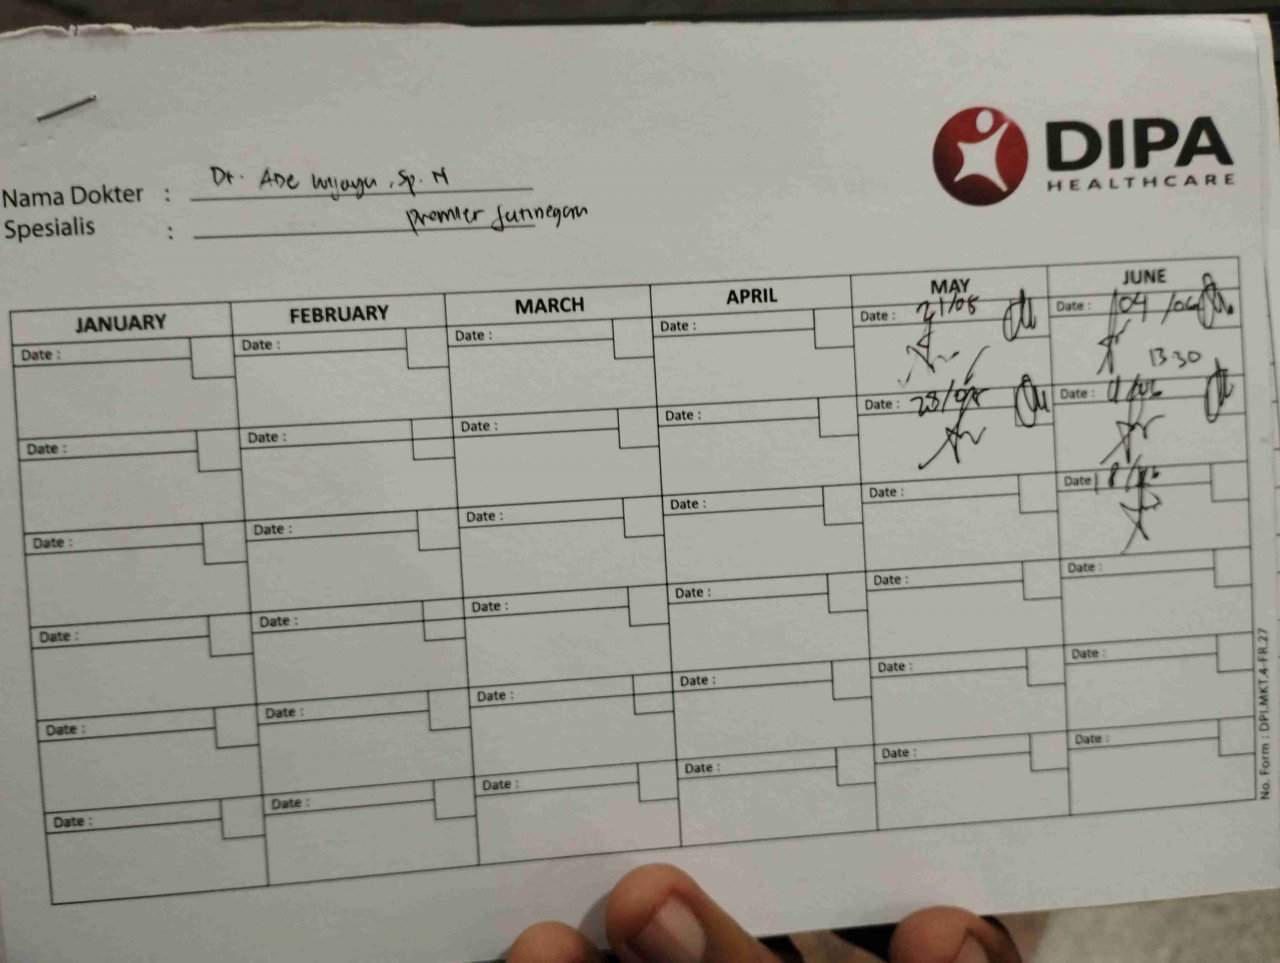 DIPA
HEALTHCARE
Nama Dokter : Dr. Ade Wijaya, Sp. N
Spesialis :
Premier Jatinegara
JANUARY FEBRUARY MARCH APRIL MAY JUNE
Date : Date : Date : Date : Date : 21/05 Date : 04/06
13.30
Date : Date : Date : Date : Date : 28/05 Date : 11/06
Date : Date : Date : Date : Date : Date : 18/06
Date : Date : Date : Date : Date : Date :
Date : Date : Date : Date : Date : Date :
Date : Date : Date : Date : Date : Date :
No. Form : DPI.MKT.4-FR.27